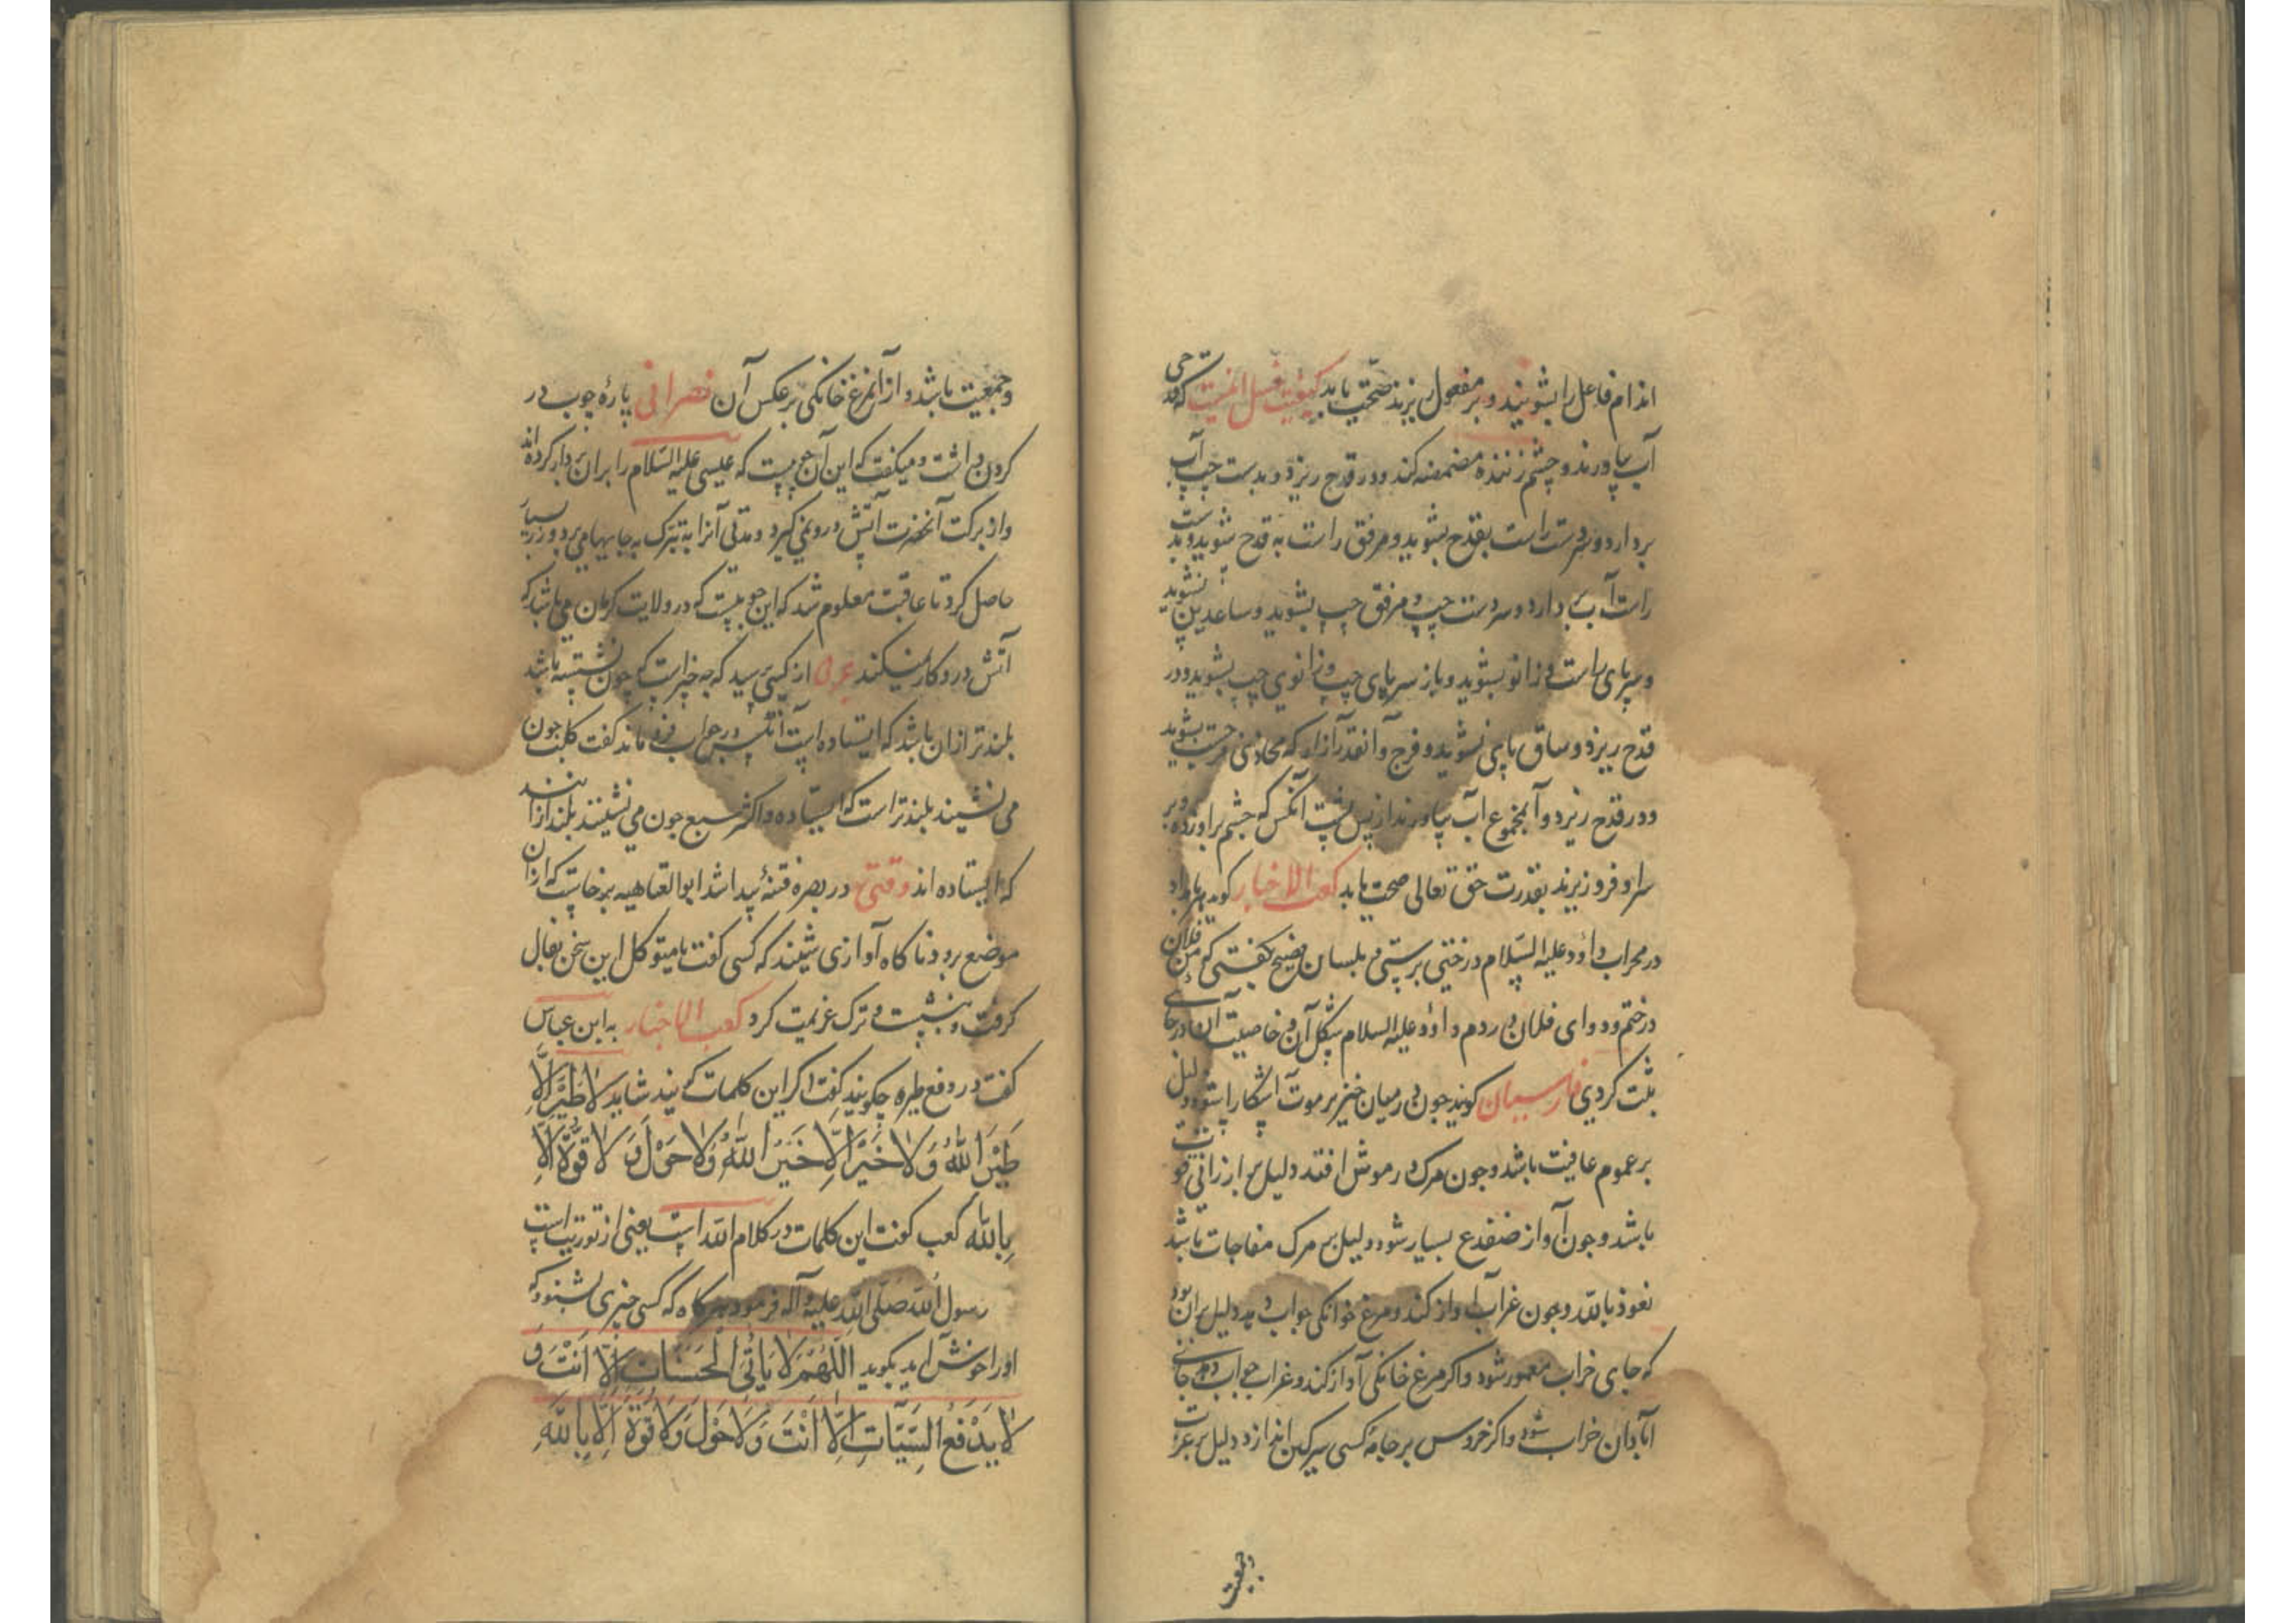 اندام فاعل را بشویند و بر مفعول ریزند صحت یابد کیفیت غسل انست که قدحی
آب بیاورند و چشم زننده مضمضه کند و در قدح ریزد و بدست چپ آب
بردارد و سردست راست بقدح بشوید و مرفق راست به قدح شوید و بدست
راست آب بردارد و سردست چپ و مرفق چپ بشوید و ساعدین نشوید
و سر پای راست و زانو بشوید و باز سر پای چپ و زانوی چپ بشوید و در
قدح ریزد و ساق پای نشوید و فرج و آنقدر آزار که محاذی فرجست بشوید
و در قدح ریزد و آنمجموع آب بیاورند از پس پشت آنکس که چشم براو زده و بر
سر او فرو ریزند بقدرت حق تعالی صحت یابد کعب الاخبار کوید بامداد
در محراب داود علیه السلام درختی برستی و بلسان فصیح بکفتی که من فلان
درختم و دوای فلان دردم داود علیه السلام شکل آن و خاصیت آن در جای
ثبت کردی فارسیان کویند چون در میان خنزیر موت آشکارا شود دلیل
بر عموم عافیت باشد و جون مرک در موش افتد دلیل بر ارزانی قوت
باشد و جون آواز ضفدع بسیار شود دلیل بر مرک مفاجات باشد
نعوذ بالله و جون غراب آواز کند و مرغ خوانکی جواب دهد دلیل بران بود
که جای خراب معمور شود واکر مرغ خانکی آواز کند و غراب جواب دهد جای
آبادان خراب شود واکر خروس بر جامهٔ کسی سرکین اندازد دلیل بر عزت
وجمعیت
وجمعیت باشد و از آن مرغ خانکی برعکس آن نصرانی پارهٔ چوب در
کردن داشت و میکفت که این آن چوبیست که عیسی علیه السلام را بران بردار کرده اند
و از برکت آنحضرت آتش در و نمی کیرد و مدتی آنرا به تبرک به جایها می برد و زر بسیار
حاصل کرد تا عاقبت معلوم شد که این چوبیست که در ولایت کرمان می باشد که
آتش در و کار نمیکند از کسی پرسید که چه خبر است که چون نشسته باشد
بلندتر ازان باشد که ایستاده است آنکس در جواب فرو ماند کفت کلب چون
می نشیند بلندتر است که ایستاده و اکثر سبع جون می نشینند بلند ازانند
که ایستاده اند وقتی در بصره فتنهٔ پیدا شد ابوالعتاهیه برخاست که ازان
موضع برود ناکاه آوازی شنیند که کسی کفت یا متوکل این سخن بفال
کرفت و بنشست و ترک عزیمت کرد کعب الاخبار به ابن عباس
کفت در دفع طیره چکویند کفت اکر این کلمات کویند شاید لا طَیْرَ اِلّا
طَیْرُ اللهِ وَلا خَیْرَ اِلّا خَیْرُ اللهِ وَلا حَوْلَ وَ لا قُوَّةَ اِلّا
بِالله کعب کفت این کلمات در کلام الله است یعنی از توریت است
رسول الله صلی الله علیه وآله فرمود هر کاه که کسی خبری بشنود که
اورا خوش آید بکوید اَللّهُمَّ لا یَأتی الْحَسَناتِ اِلّا اَنْتَ وَ
لا یَدْفَعُ السَّیِّآتِ اِلّا اَنْتَ وَلا حَوْلَ وَلا قُوَّةَ اِلّا بِاللهِ